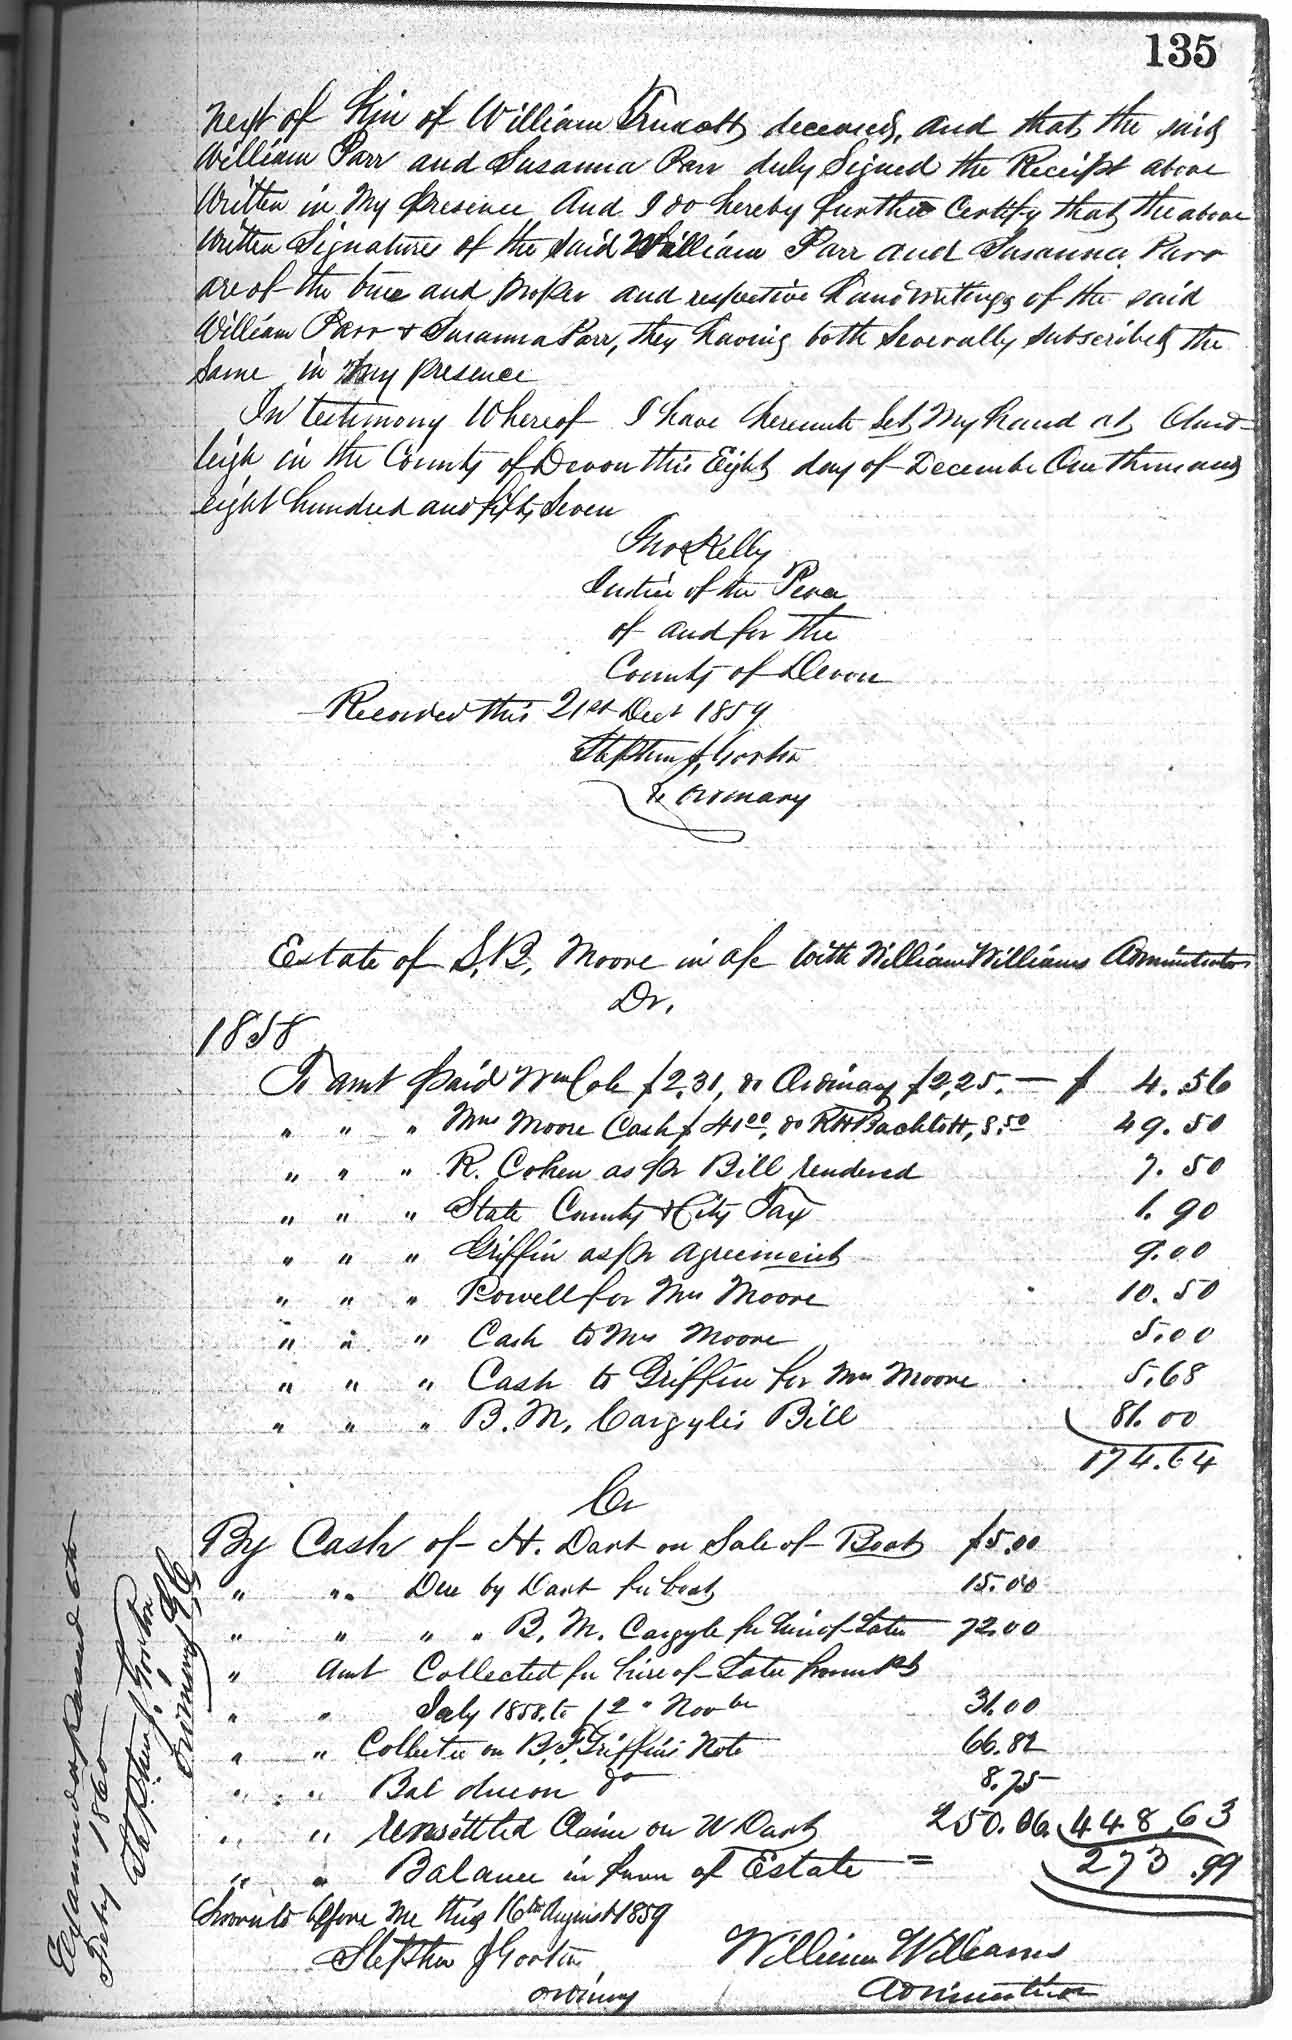 135
next of Kin of William Truscott deceased, and that the said
William Parr and Susanna Parr duly Signed the Receipt above
Written in My presence And I do hereby further Certify that the above
Written Signatures of the said William Parr and Susanna Parr
are of the true and proper and respective handwritings of the said
William Parr & Susanna Parr, they having both Severally subscribed the
Same in My presence
In testimony Whereof I have hereunto Set My hand at Chud-
leigh in the County of Devon this Eight day of December One thousand
eight hundred and fifty Seven
Thos Kelly
Justice of the Peace
of and for the
County of Devon
Recorded this 21st Decr 1859
Stephen J. Gorton
Ordinary
Estate of S. B. Moore in a/c With William Williams Administrator
Dr.
1858
To amt paid Wm Cole $2.31, do Ordinary $2.25. — $ 4.56
" " " Mrs Moore Cash $41.00, do R H Bachlott, 8.50 49.50
" " " R. Cohen as pr Bill rendered 7.50
" " " State County & City Tax 1.90
" " " Griffin as pr agreement 9.00
" " " Powell for Mrs Moore 10.50
" " " Cash to Mrs Moore 5.00
" " " Cash to Griffin for Mrs Moore 5.68
" " " B. M. Cargyles Bill 81.00
174.64
Cr
By Cash of H. Dart on Sale of Boat $5.00
" " Due by Dart for boat 15.00
" " " " B. M. Cargyle for hire of 72.00
" Amt Collected for hire of from 1st
" " July 1858 to 12" Novbr 31.00
" " Collected on B. F. Griffins Note 66.82
" " Bal due on do 8.75
" " unsettled Claim on W Dart 250.06 448.63
" " Balance in favor of Estate = 273.99
Sworn to before me this 16th August 1859
Stephen J Gorton
Ordinary
William Williams
Administrator
Examined & passed 6th
Feby 1860
Stephen J. Gorton
Ordinary C.C.